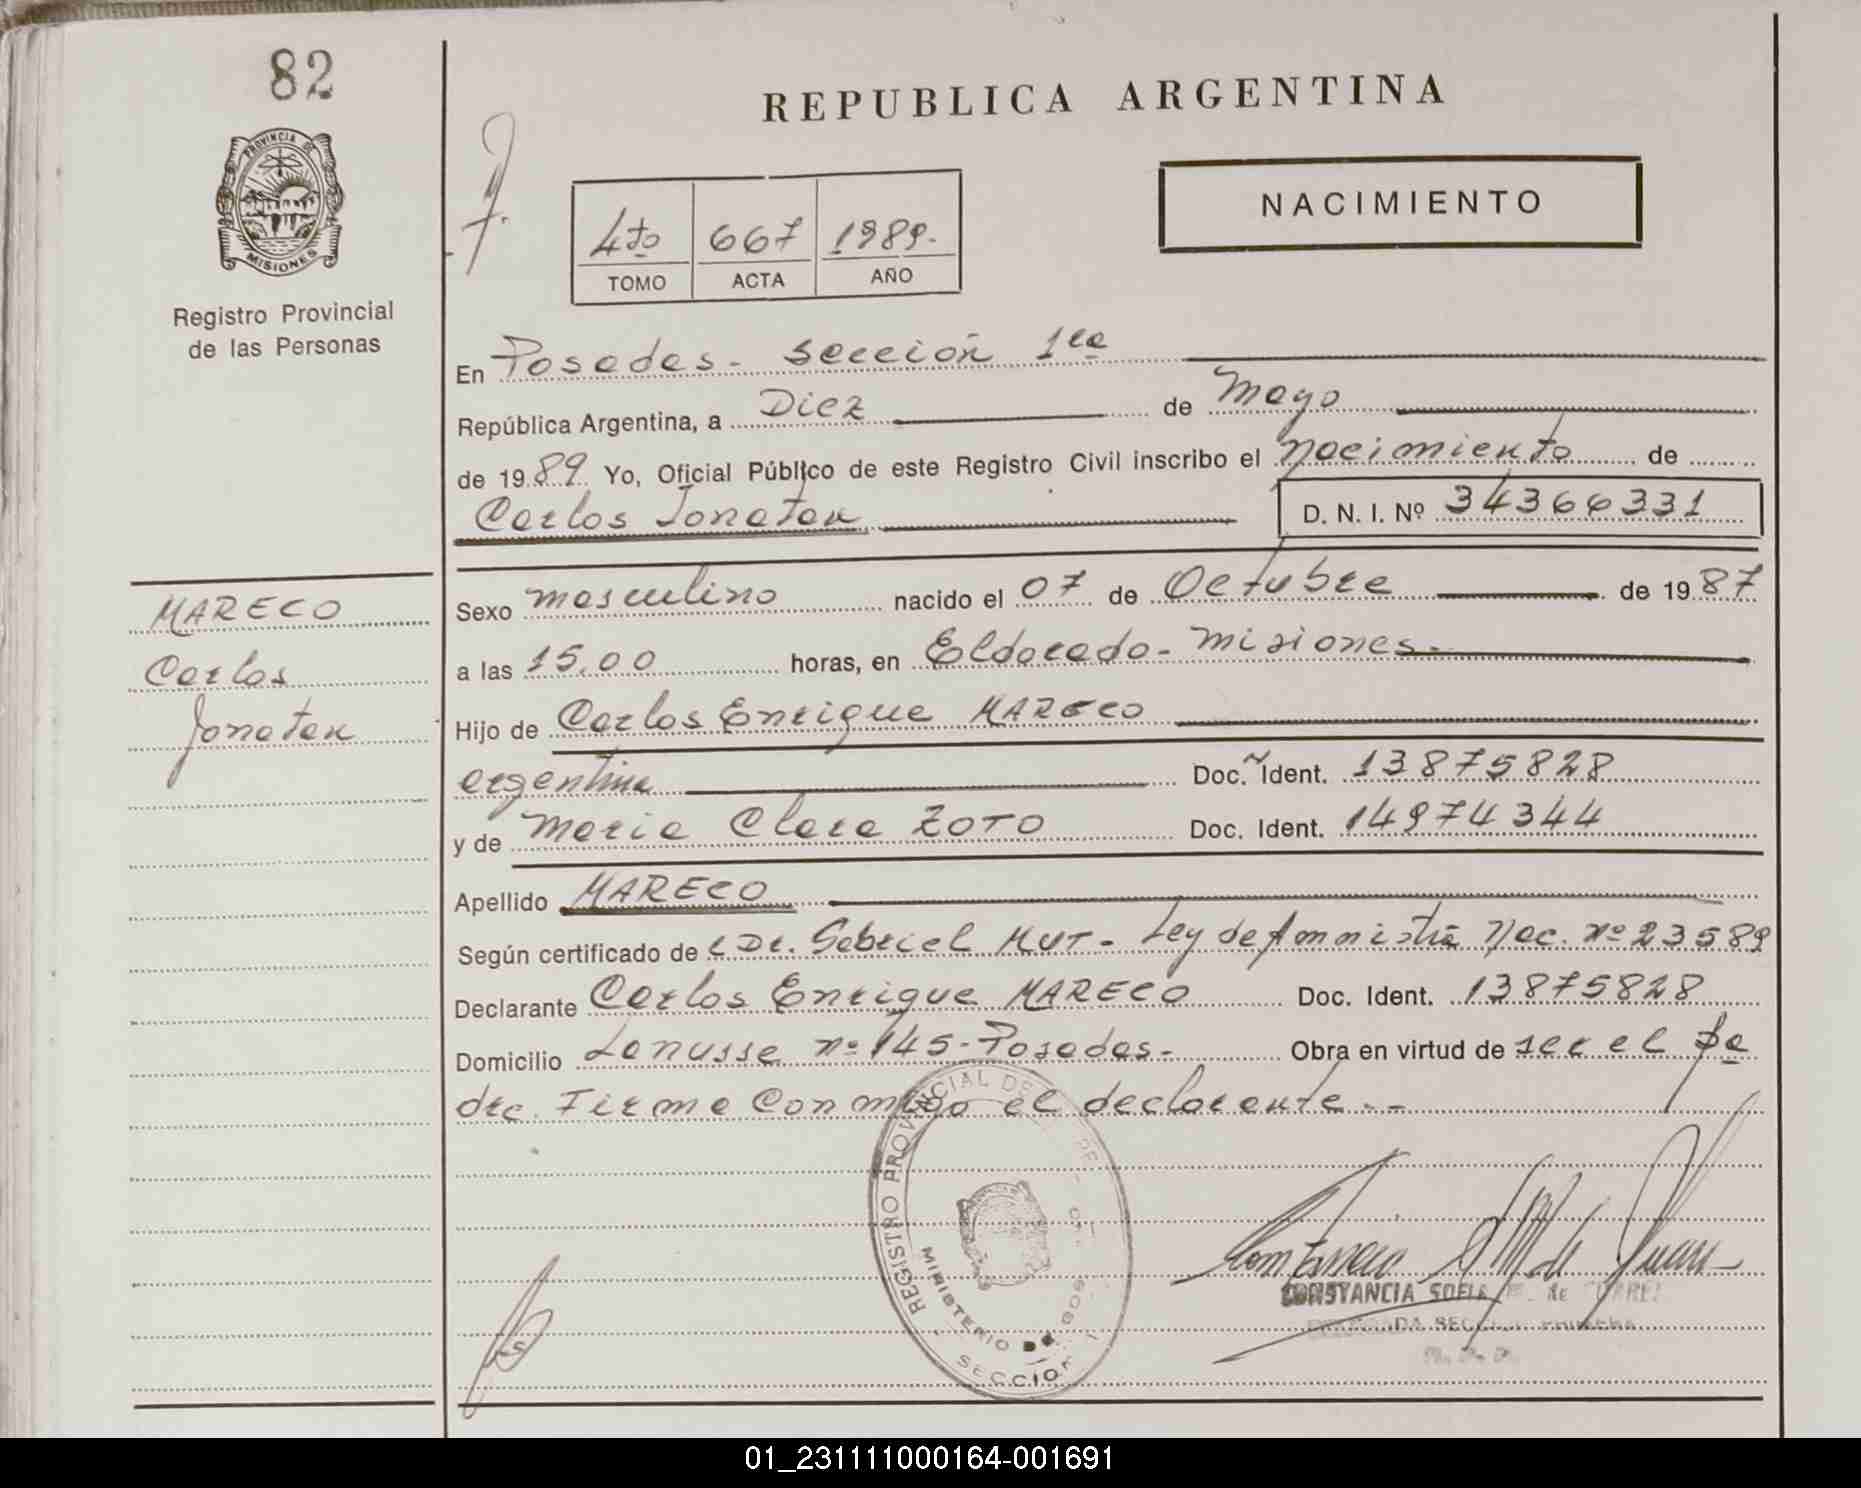 82
REPUBLICA ARGENTINA
PROVINCIA DE
MISIONES
Registro Provincial
de las Personas
4to 667 1989.
TOMO ACTA AÑO
NACIMIENTO
En Posadas - Sección 1ra
República Argentina, a Diez de Mayo
de 1989 Yo, Oficial Público de este Registro Civil inscribo el Nacimiento de
Carlos Jonatan D. N. I. Nº 34366331
MARECO
Carlos
Jonatan
Sexo masculino nacido el 07 de Octubre de 1987
a las 15,00 horas, en Eldorado - Misiones -
Hijo de Carlos Enrique MARECO
argentina Doc. Ident. 13875828
y de Maria Clara ZOTO Doc. Ident. 14974344
Apellido MARECO
Según certificado de Dr. Gabriel MUT - Ley de Amnistia Nac. Nº 23589
Declarante Carlos Enrique MARECO Doc. Ident. 13875828
Domicilio Lanusse nº 145 - Posadas - Obra en virtud de ser el pa
dre. Firma Conmigo el declarante. --
REGISTRO PROVINCIAL DE
MINISTERIO DE GOB
SECCION
CONSTANCIA SOFIA de
01_231111000164-001691